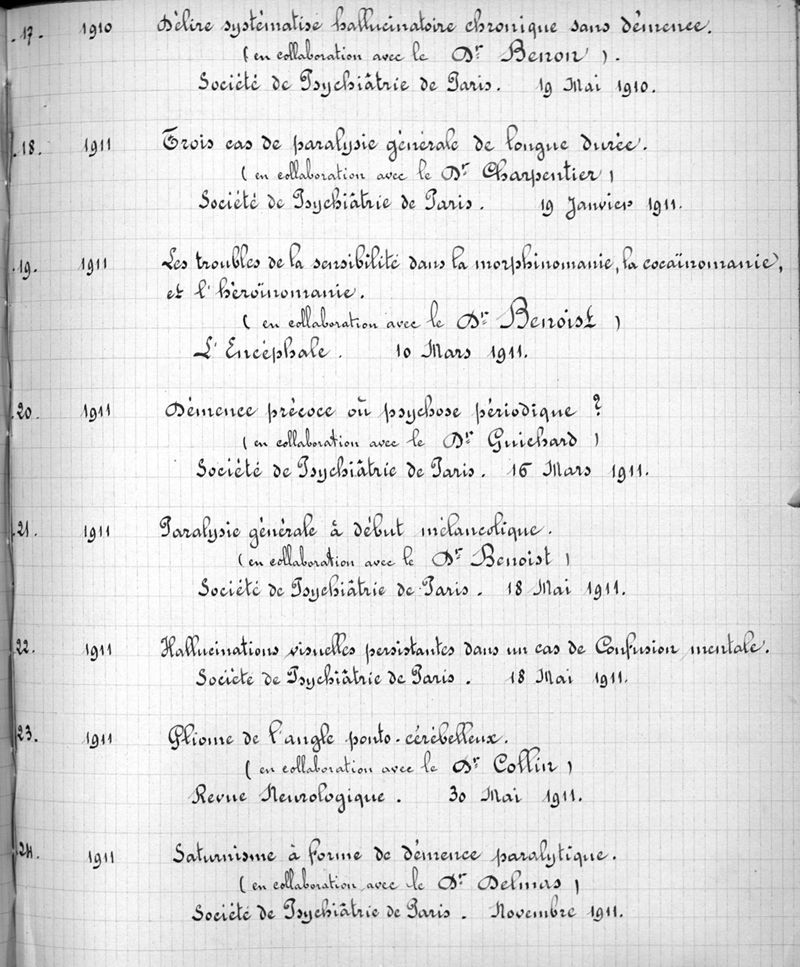 .17. 1910 Délire systématisé hallucinatoire chronique sans démence.
(en collaboration avec le Dr Benon).
Société de Psychiâtrie de Paris. 19 Mai 1910.
.18. 1911 Trois cas de paralysie générale de longue durée.
(en collaboration avec le Dr Charpentier)
Société de Psychiâtrie de Paris. 19 Janvier 1911.
.19. 1911 Les troubles de la sensibilité dans la morphinomanie, la cocaïnomanie,
et l'héroïnomanie.
(en collaboration avec le Dr Benoist)
L'Encéphale. 10 Mars 1911.
.20 1911 Démence précoce où psychose périodique ?
(en collaboration avec le Dr Guichard)
Société de Psychiâtrie de Paris. 16 Mars 1911.
.21. 1911 Paralysie générale à début mélancolique.
(en collaboration avec le Dr Benoist)
Société de Psychiâtrie de Paris. 18 Mai 1911.
22. 1911 Hallucinations visuelles persistantes dans un cas de Confusion mentale.
Société de Psychiâtrie de Paris. 18 Mai 1911.
23. 1911 Gliome de l'angle ponto-cérébelleux.
(en collaboration avec le Dr Collin)
Revue Neurologique. 30 Mai 1911.
.24. 1911 Saturnisme à forme de démence paralytique.
(en collaboration avec le Dr Delmas)
Société de Psychiâtrie de Paris. Novembre 1911.